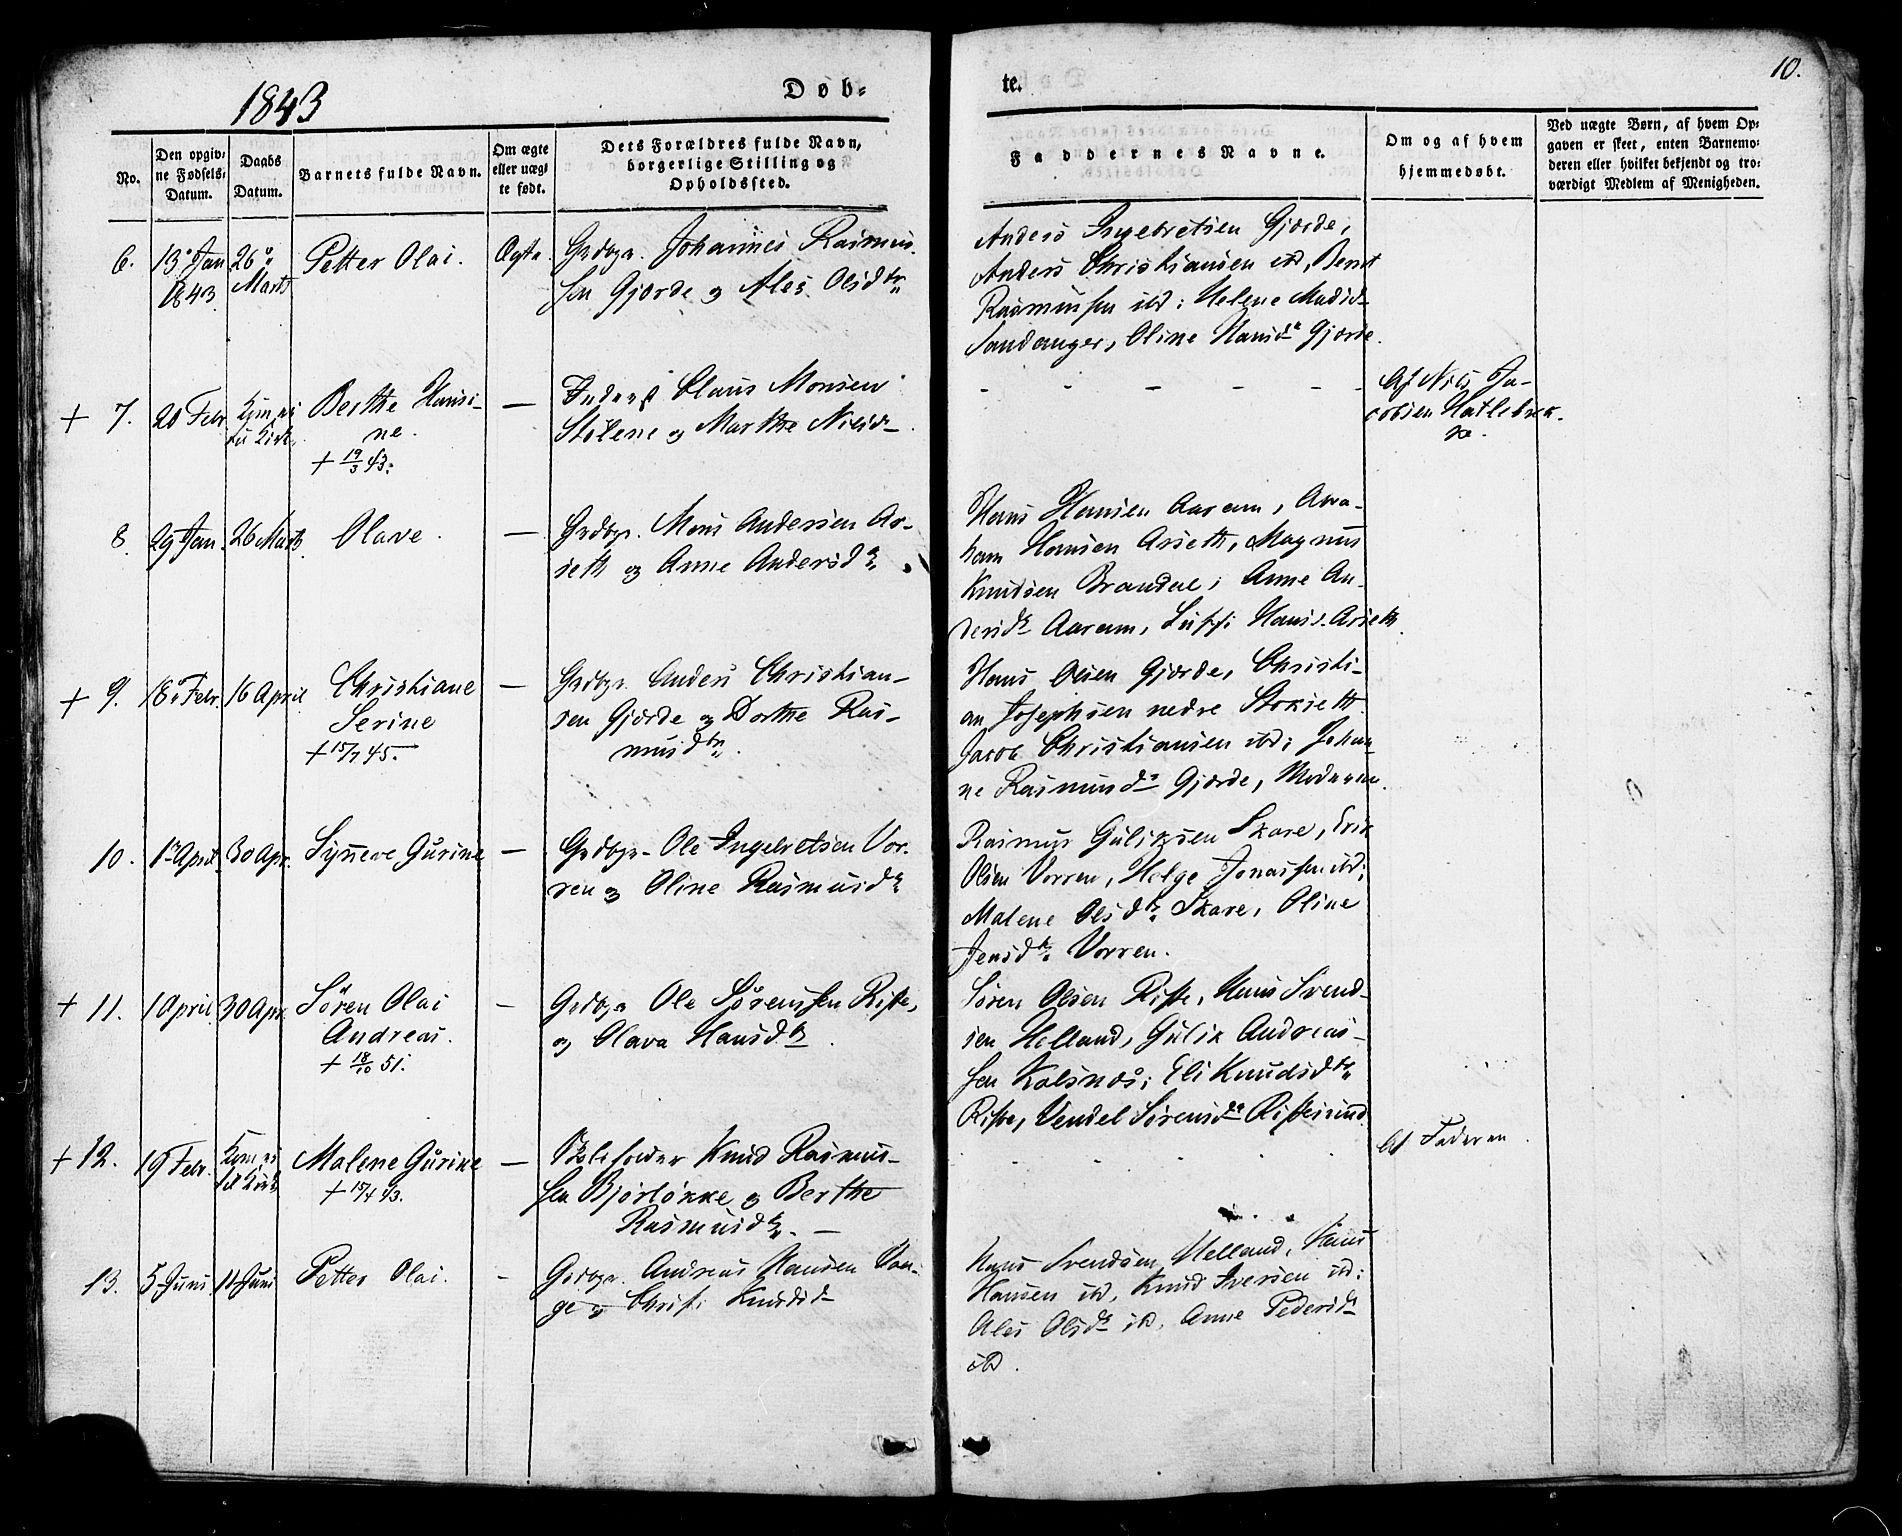 1843
Døb=
te.
10.
No.
Den opgiv=
ne Fødsels=
Datum.
Daabs
Datum.
Barnets fulde Navn.
Om ægte
eller uæg=
te født.
Dets Forældres fulde Navn,
borgerlige Stilling og
Opholdssted.
Faddernes Navne.
Om og af hvem
hjemmedøbt.
Ved uægte Børn, af hvem Op=
gaven er skeet, enten Barnemo=
deren eller hvilket bekjendt og tro=
værdigt Medlem af Menigheden.
6.
13 Jan
1843
26
Marts
Petter Olai.
Ægte.
Grdbgr. Johannes Rasmus
sen Gjørde og Ales Olsdtr
Anders Ingebretsen Gjørde,
Anders Christiansen ibd, Bernt
Rasmussen ibd: Helene Madsd
Sandanger, Oline Hansdr Gjørde.
+ 7.
20 Febr
Kom ei
til Kirk
Berthe Hansi-
ne.
+ 19/3 43.
—
Inderst Claus Monsen
Stølene og Marthe Nilsd
- - - - - -
Af Nils Ja-
cobsen Hatlebrek-
ke.
8.
29 Jan.
26 Marts
Olave.
—
Grdbgr. Mons Andersen Ar-
seth og Anne Andersdr
Hans Hansen Aaram, Abra-
ham Hansen Arseth, Magnus
Knudsen Brandal; Anne An-
dersdr Aaram, Hansd. Arseth
+ 9.
18 Febr.
16 April
Christiane
Serine
+ 15/7 45.
—
Grdbgr. Anders Christian-
sen Gjørde og Dorthe Ras-
musdtr.
Hans Olsen Gjørde, Christi-
an Josephsen nedre Storseth
Jacob Christiansen ibd; Johan-
ne Rasmusdr Gjørde, Moderen
10.
1 April.
30 Apr.
Synneve Gurine
—
Grdbgr. Ole Ingebretsen Vor-
ren og Oline Rasmusdr
Rasmus Guliksen Skare, Erik
Olsen Vorren, Helge Jonassen ibd;
Malene Olsdr Skare, Oline
Jensdr Vorren.
+ 11.
1 April.
30 Apr.
Søren Olai
Andreas.
+ 18/10 51.
—
Grdbgr Ole Sørenssen Riste,
og Olava Hansdr.
Søren Olsen Riste, Hans Svend-
sen Helland, Gulik Andreas-
sen Kalsnæs; Eli Knudsdtr
Riste, Vendel Sørensdr Ristesund
+ 12.
19 Febr.
Kom ei
til Kirk
Malene Gurine
+ 15/4 43.
—
Skoleholder Knud Rasmus-
sen Bjørløkke og Berthe
Rasmusdr. —
- - - -
Af Faderen.
13.
5 Juni.
11 Juni
Petter Olai.
-
Grdbgr. Andreas Hansen Van-
ge og Knudsd
Hans Svendsen Helland, Hans
Hansen ibd, Knud Iversen ibd;
Ales Olsdr ibd, Anne Pedersdr
ibd.